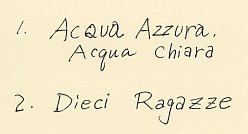 1. Acqua Azzura,
Acqua Chiara
2. Dieci Ragazze